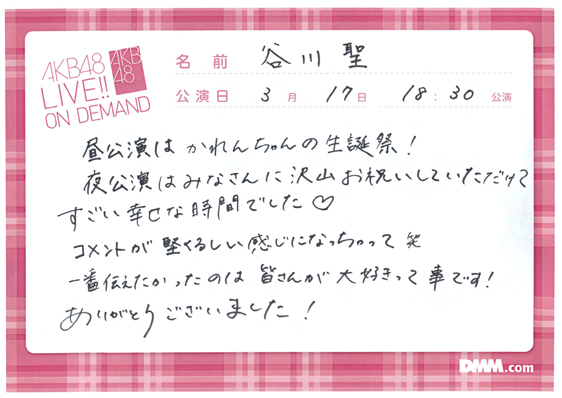 AKB48
LIVE!!
ON DEMAND
AKB
48
名前 谷川聖
公演日 3月 17日 18:30 公演
昼公演は かれんちゃんの生誕祭！
夜公演はみなさんに沢山お祝いしていただけて
すごい幸せな時間でした♡
コメントが堅くるしい感じになっちゃって 笑
一番伝えたかったのは 皆さんが大好きって事です！
ありがとうございました！
DMM.com